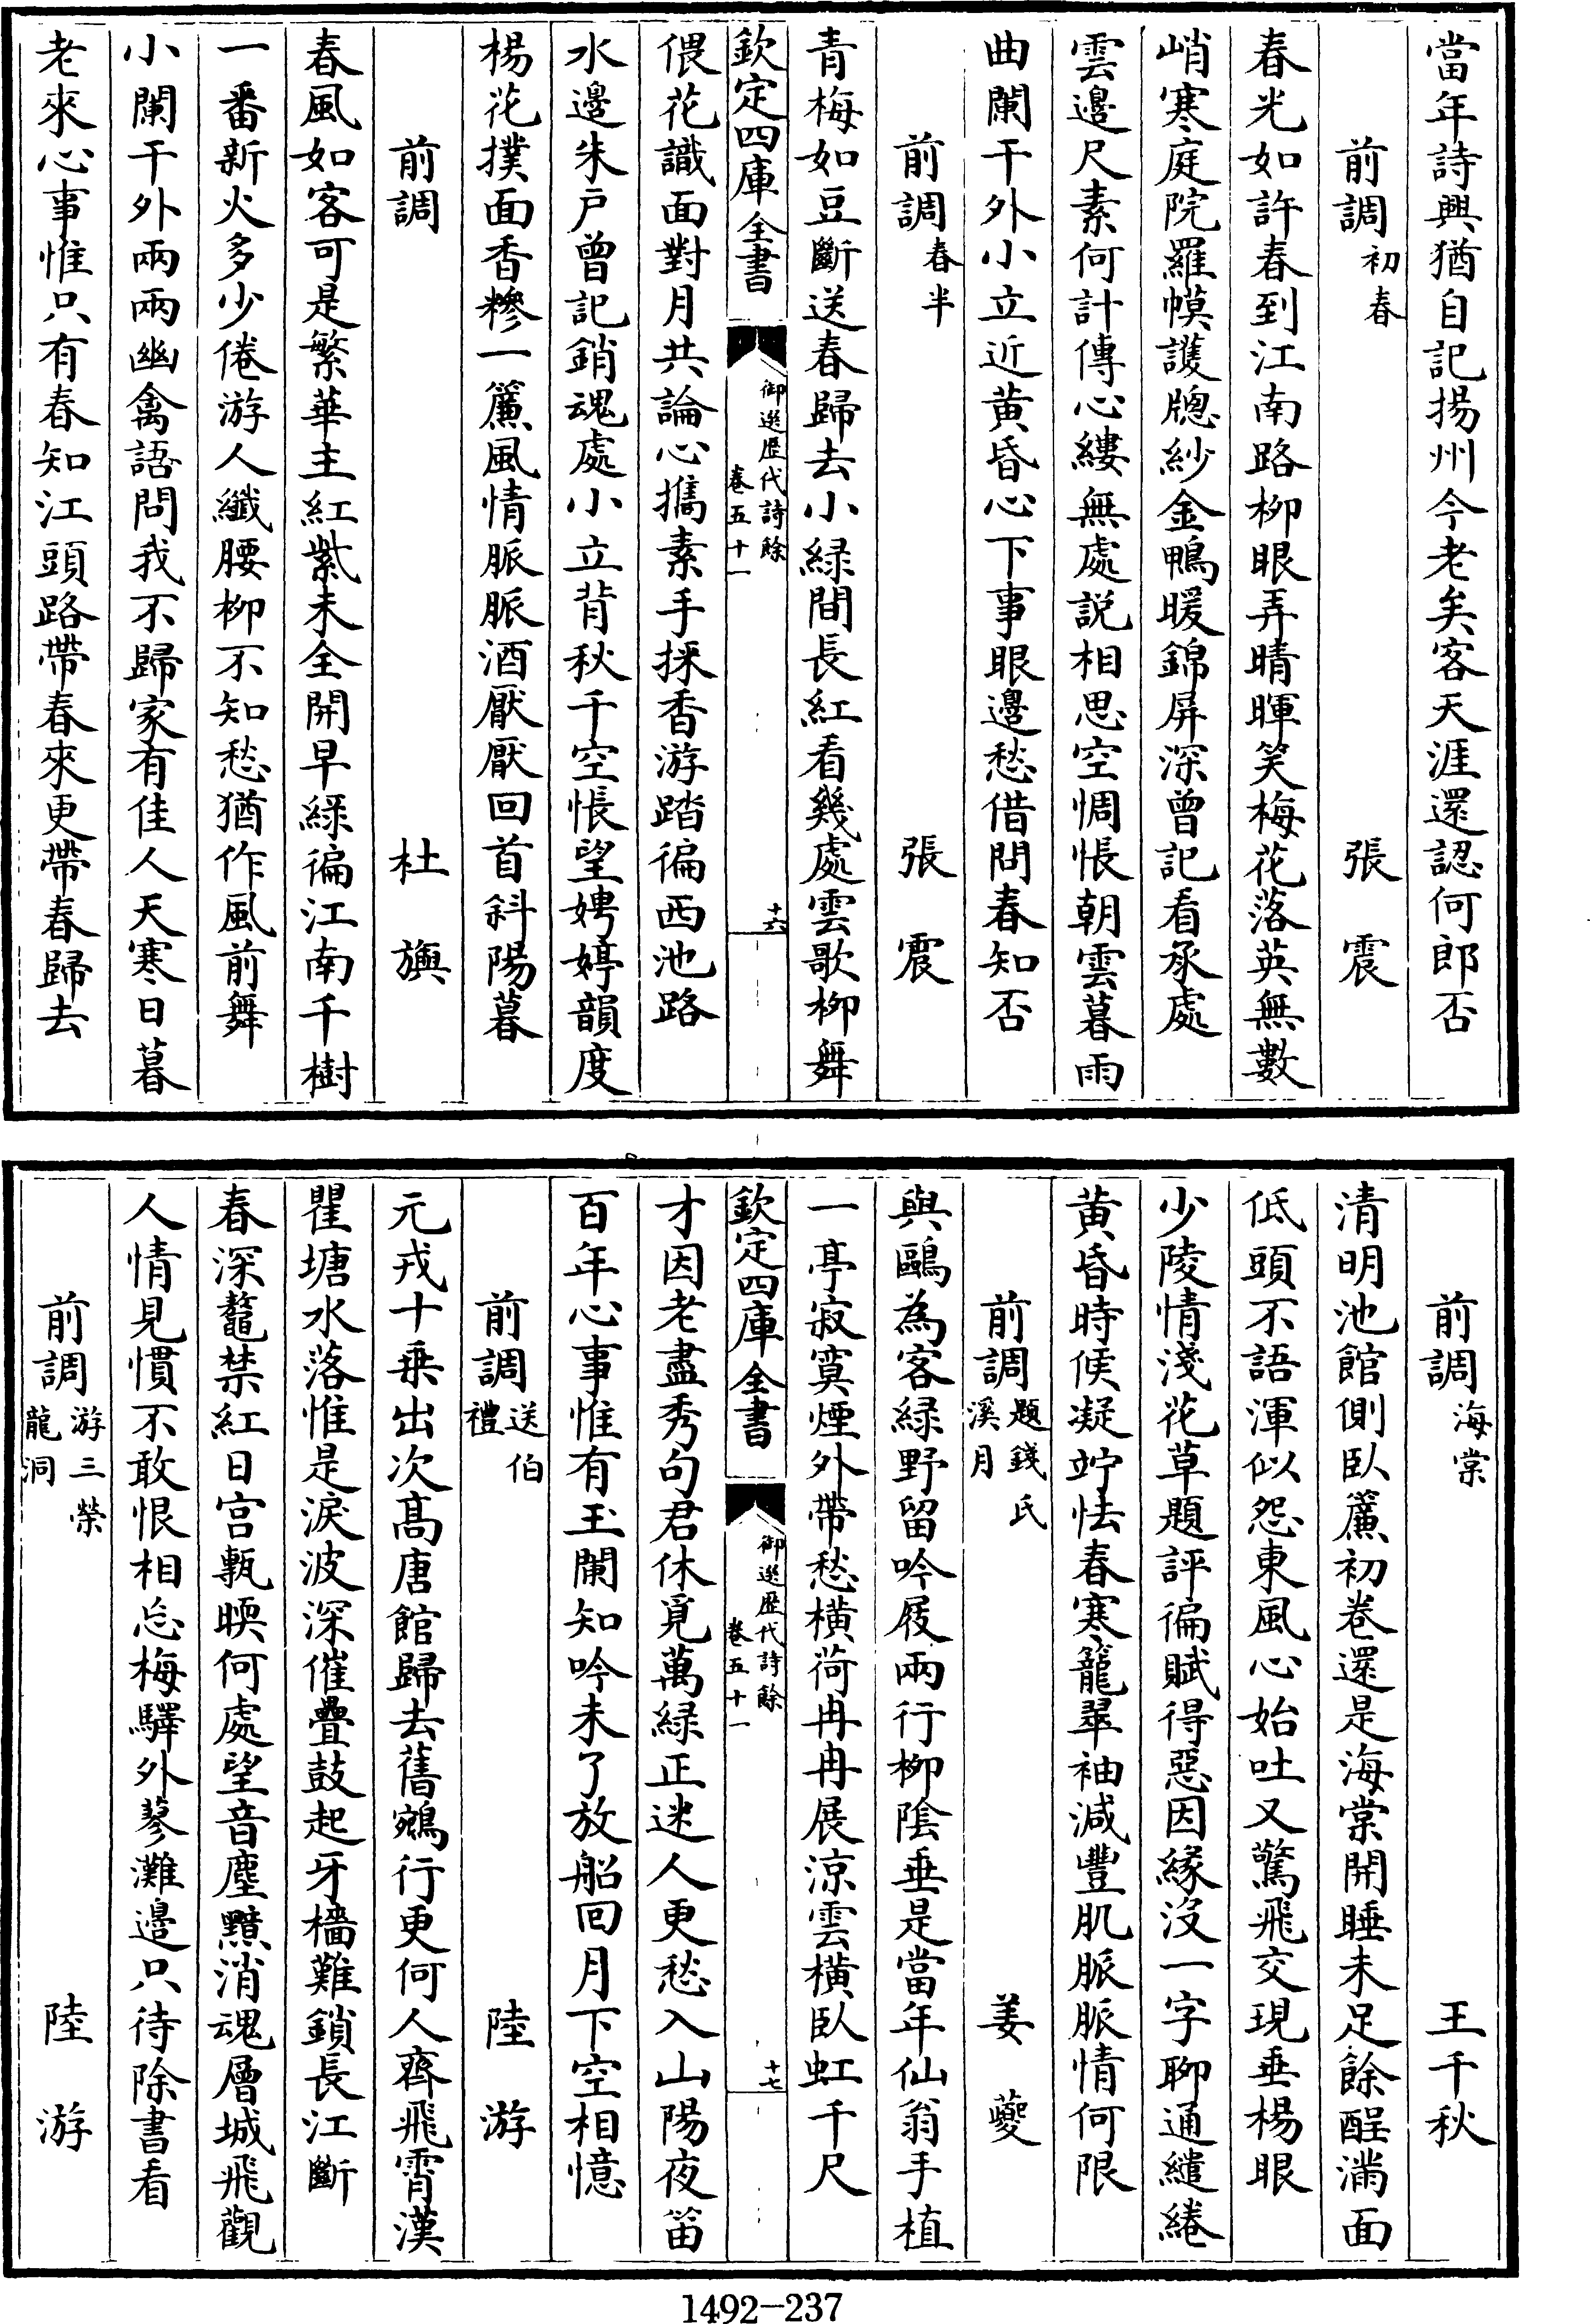 當年詩興猶自記揚州今老矣客天涯還認何郎否
前調初春 張震
春光如許春到江南路柳眼弄晴暉笑梅花落英無數
峭寒庭院羅幙護牕紗金鴨暖錦屏深曾記看承處
雲邊尺素何計傳心縷無處説相思空惆悵朝雲暮雨
曲闌干外小立近黄昏心下事眼邊愁借問春知否
前調春半 張震
青梅如豆斷送春歸去小緑間長紅看幾處雲歌柳舞
欽定四庫全書 御選歷代詩餘 卷五十一 十六
偎花識面對月共論心攜素手採香游踏徧西池路
水邊朱户曾記銷魂處小立背秋千空悵望娉婷韻度
楊花撲面香糝一簾風情脈脈酒厭厭回首斜陽暮
前調 杜旟
春風如客可是繁華主紅紫未全開早緑徧江南千樹
一番新火多少倦游人纖腰柳不知愁猶作風前舞
小闌干外兩兩幽禽語問我不歸家有佳人天寒日暮
老來心事惟只有春知江頭路帶春來更帶春歸去
前調海棠 王千秋
清明池館側臥簾初卷還是海棠開睡未足餘酲滿面
低頭不語渾似怨東風心始吐又驚飛交現垂楊眼
少陵情淺花草題評徧賦得惡因緣没一字聊通繾綣
黄昏時候凝竚怯春寒籠翠袖減豐肌脈脈情何限
前調題錢氏溪月 姜夔
與鷗為客緑野留吟屐兩行柳隂垂是當年仙翁手植
一亭寂寞煙外帶愁横荷冉冉展涼雲横臥虹千尺
欽定四庫全書 御選歷代詩餘 卷五十一 十七
才因老盡秀句君休覓萬緑正迷人更愁入山陽夜笛
百年心事惟有玉闌知吟未了放船回月下空相憶
前調送伯禮 陸游
元戎十乘出次高唐館歸去舊鵷行更何人齊飛霄漢
瞿塘水落惟是淚波深催疊鼓起牙檣難鎖長江斷
春深鼇禁紅日宫甎暎何處望音塵黯消魂層城飛觀
人情見慣不敢恨相忘梅驛外蓼灘邊只待除書看
前調游三榮龍洞 陸游
1492—237